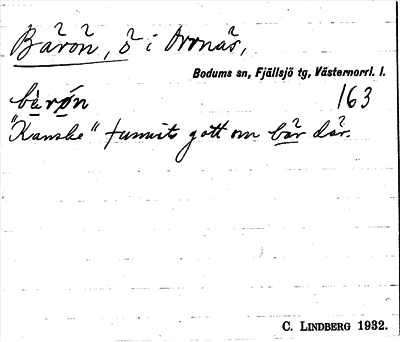 Bärön, ö i Ormås,
Bodums sn, Fjällsjö tg, Västernorrl. l.
bä̀rø̀n 163
"Kanske" funnits gott om bär där.
C. LINDBERG 1932.